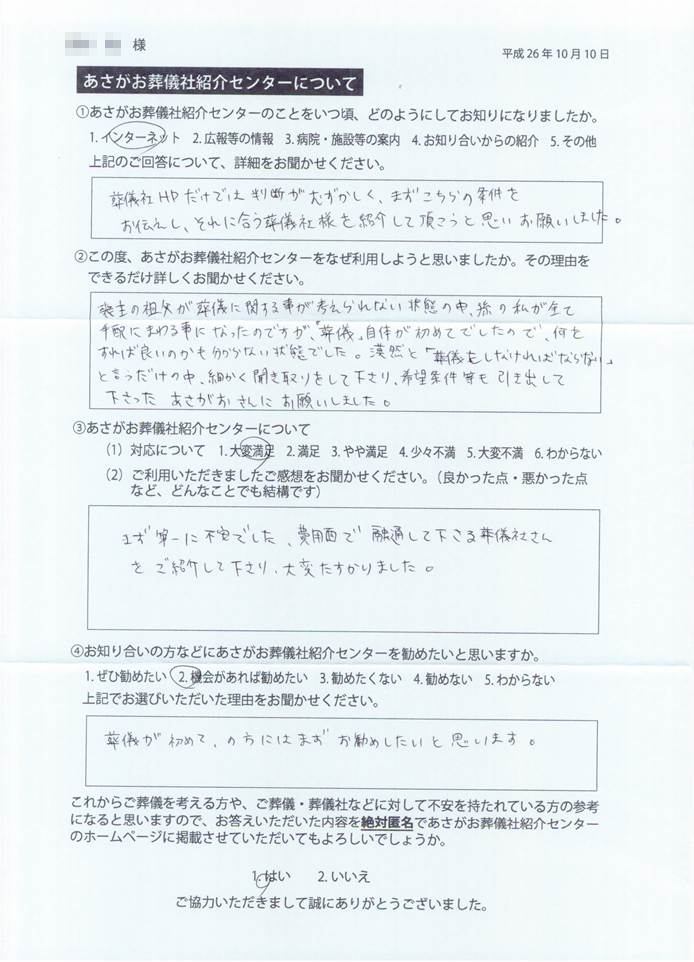 様
平成26年10月10日
あさがお葬儀社紹介センターについて
①あさがお葬儀社紹介センターのことをいつ頃、どのようにしてお知りになりましたか。
1. インターネット 2. 広報等の情報 3. 病院・施設等の案内 4. お知り合いからの紹介 5. その他
上記のご回答について、詳細をお聞かせください。
葬儀社HPだけでは判断がむずかしく、まずこちらの条件を
お伝えし、それに合う葬儀社様を紹介して頂こうと思いお願いしました。
②この度、あさがお葬儀社紹介センターをなぜ利用しようと思いましたか。その理由を
できるだけ詳しくお聞かせください。
喪主の祖父が葬儀に関する事が考えられない状態の中、孫の私が全て
手配にまわる事になったのですが、「葬儀」自体が初めてでしたので、何を
すれば良いのかも分からない状態でした。漠然と「葬儀をしなければならない」
と言うだけの中、細かく聞き取りをして下さり、希望条件等も引き出して
下さった あさがおさんにお願いしました。
③あさがお葬儀社紹介センターについて
（1）対応について 1. 大変満足 2. 満足 3. やや満足 4. 少々不満 5. 大変不満 6. わからない
（2）ご利用いただきましたご感想をお聞かせください。（良かった点・悪かった点
など、どんなことでも結構です）
まず第一に不安でした、費用面で融通して下さる葬儀社さん
をご紹介して下さり、大変たすかりました。
④お知り合いの方などにあさがお葬儀社紹介センターを勧めたいと思いますか。
1. ぜひ勧めたい 2. 機会があれば勧めたい 3. 勧めたくない 4. 勧めない 5. わからない
上記でお選びいただいた理由をお聞かせください。
葬儀が初めて、の方にはまずお勧めしたいと思います。
これからご葬儀を考える方や、ご葬儀・葬儀社などに対して不安を持たれている方の参考
になると思いますので、お答えいただいた内容を絶対匿名であさがお葬儀社紹介センター
のホームページに掲載させていただいてもよろしいでしょうか。
1. はい 2. いいえ
ご協力いただきまして誠にありがとうございました。